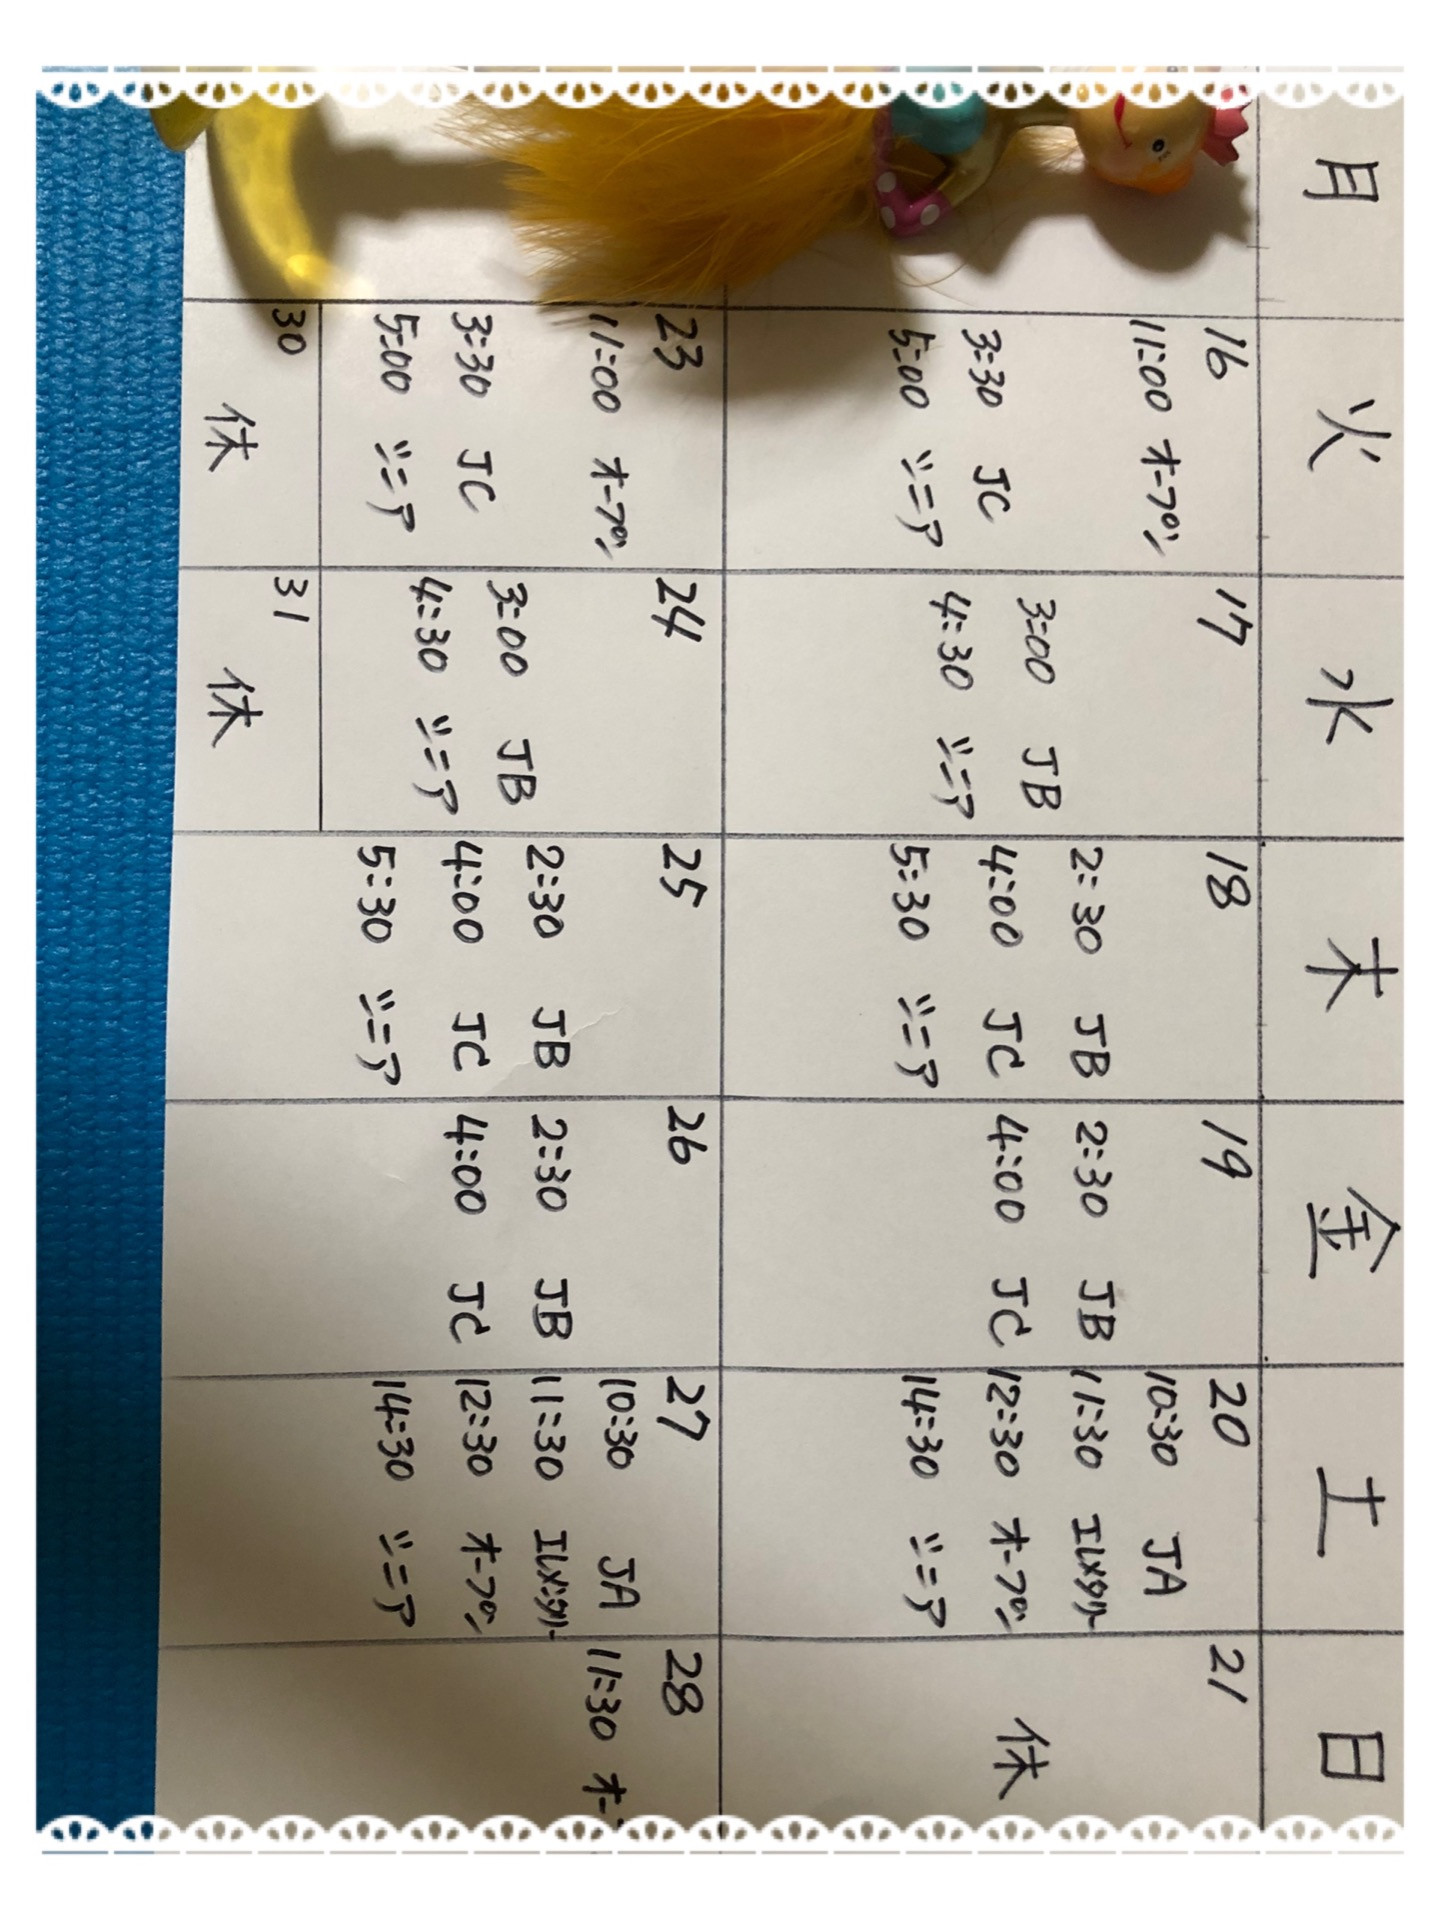 月 火 水 木 金 土 日
16
11:00 オープン
3:30 JC
5:00 ジュニア
17
3:00 JB
4:30 ジュニア
18
2:30 JB
4:00 JC
5:30 ジュニア
19
2:30 JB
4:00 JC
20
10:30 JA
11:30 エレメンタリー
12:30 オープン
14:30 ジュニア
21
休
23
11:00 オープン
3:30 JC
5:00 ジュニア
24
3:00 JB
4:30 ジュニア
25
2:30 JB
4:00 JC
5:30 ジュニア
26
2:30 JB
4:00 JC
27
10:30 JA
11:30 エレメンタリー
12:30 オープン
14:30 ジュニア
28
11:30
30
休
31
休